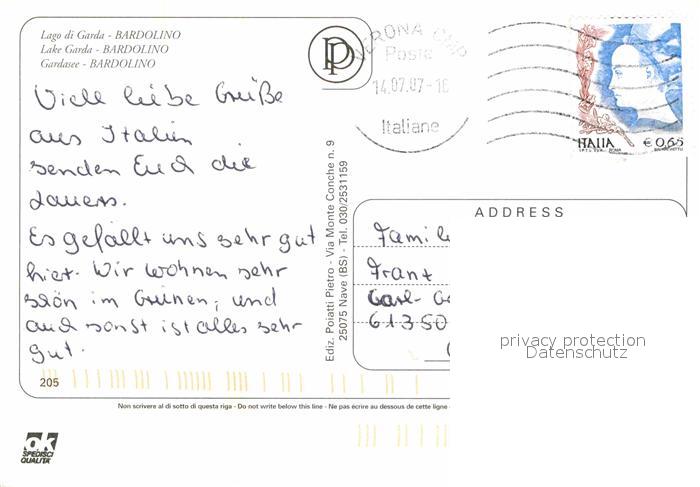 Lago di Garda - BARDOLINO
Lake Garda - BARDOLINO
Gardasee - BARDOLINO
PP
VERONA CMP
Poste
14.07.07-16
Italiane
ITALIA € 0,65
Viele liebe Grüße
aus Italien
senden Euch die
Jauers.
Es gefällt uns sehr gut
hier. Wir wohnen sehr
schön im Grünen, und
auch sonst ist alles sehr
gut.
205
Ediz. Poiatti Pietro - Via Monte Conche n. 9
25075 Nave (BS) - Tel. 030/2531159
ADDRESS
Famil
Franz
Carl-
61350
privacy protection
Datenschutz
Non scrivere al di sotto di questa riga - Do not write below this line - Ne pas écrire au dessous de cette ligne -
ok
SPEDISCI
QUALITA'